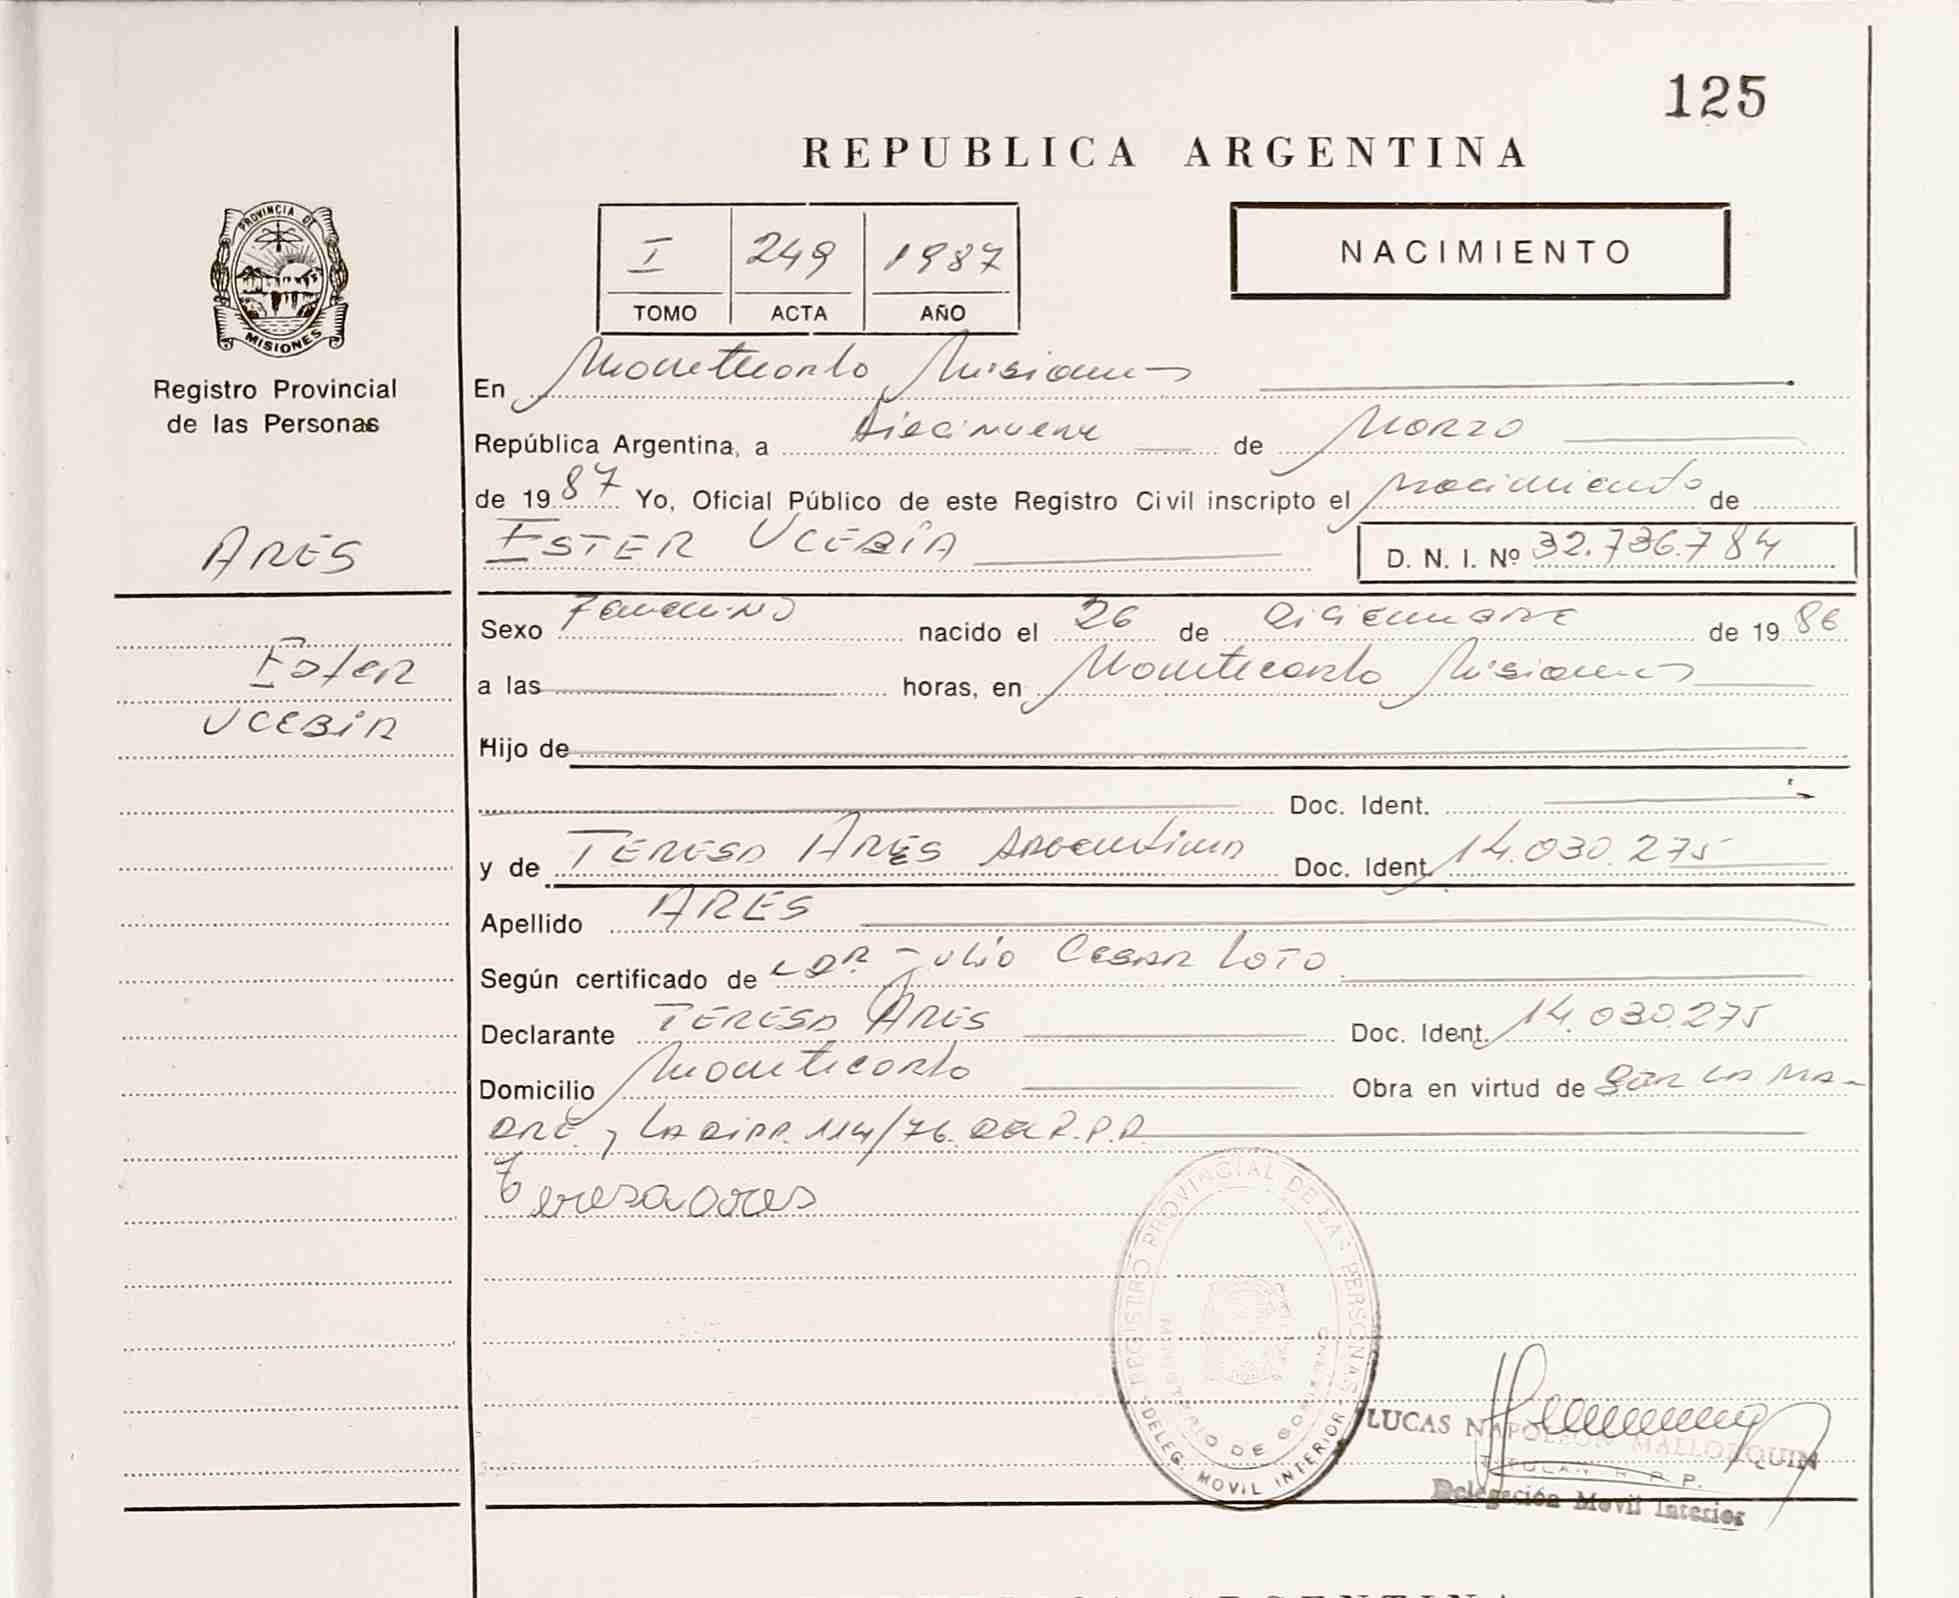 125
REPUBLICA ARGENTINA
PROVINCIA DE
MISIONES
Registro Provincial
de las Personas
I 249 1987
TOMO ACTA AÑO
NACIMIENTO
En Montecarlo Misiones
República Argentina, a diecinueve de Marzo
de 1987 Yo, Oficial Público de este Registro Civil inscripto el nacimiento de
ARES
ESTER UCEBIA D. N. I. Nº 32.736.784
Sexo Femenino nacido el 26 de diciembre de 1986
Ester
a las horas, en Montecarlo Misiones
UCEBIA
Hijo de
Doc. Ident.
y de TERESA ARES Argentina Doc. Ident. 14.030.275
Apellido ARES
Según certificado de DR. Julio Cesar Loto
Declarante TERESA ARES Doc. Ident. 14.030.275
Domicilio Montecarlo Obra en virtud de ser la ma-
dre y la disp. 114/76 del R.P.P.
Teresa ares
REGISTRO PROVINCIAL DE LAS PERSONAS
MINISTERIO DE GOBIERNO
DELEG. MOVIL INTERIOR
LUCAS NAPOLEON MALLORQUIN
TITULAR R. P. P.
Delegación Movil Interior
REPUBLICA ARGENTINA